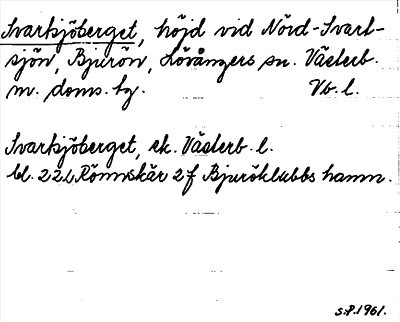 Svartsjöberget, höjd vid Nörd-Svart-
sjön, Bjurön, Lövångers sn. Västerb.
m. doms. hg. Vb. l.
Svartsjöberget, ek. Västerb. l.
bl. 22L Rönnskär 2f Bjuröklubbs hamn.
S.P. 1961.